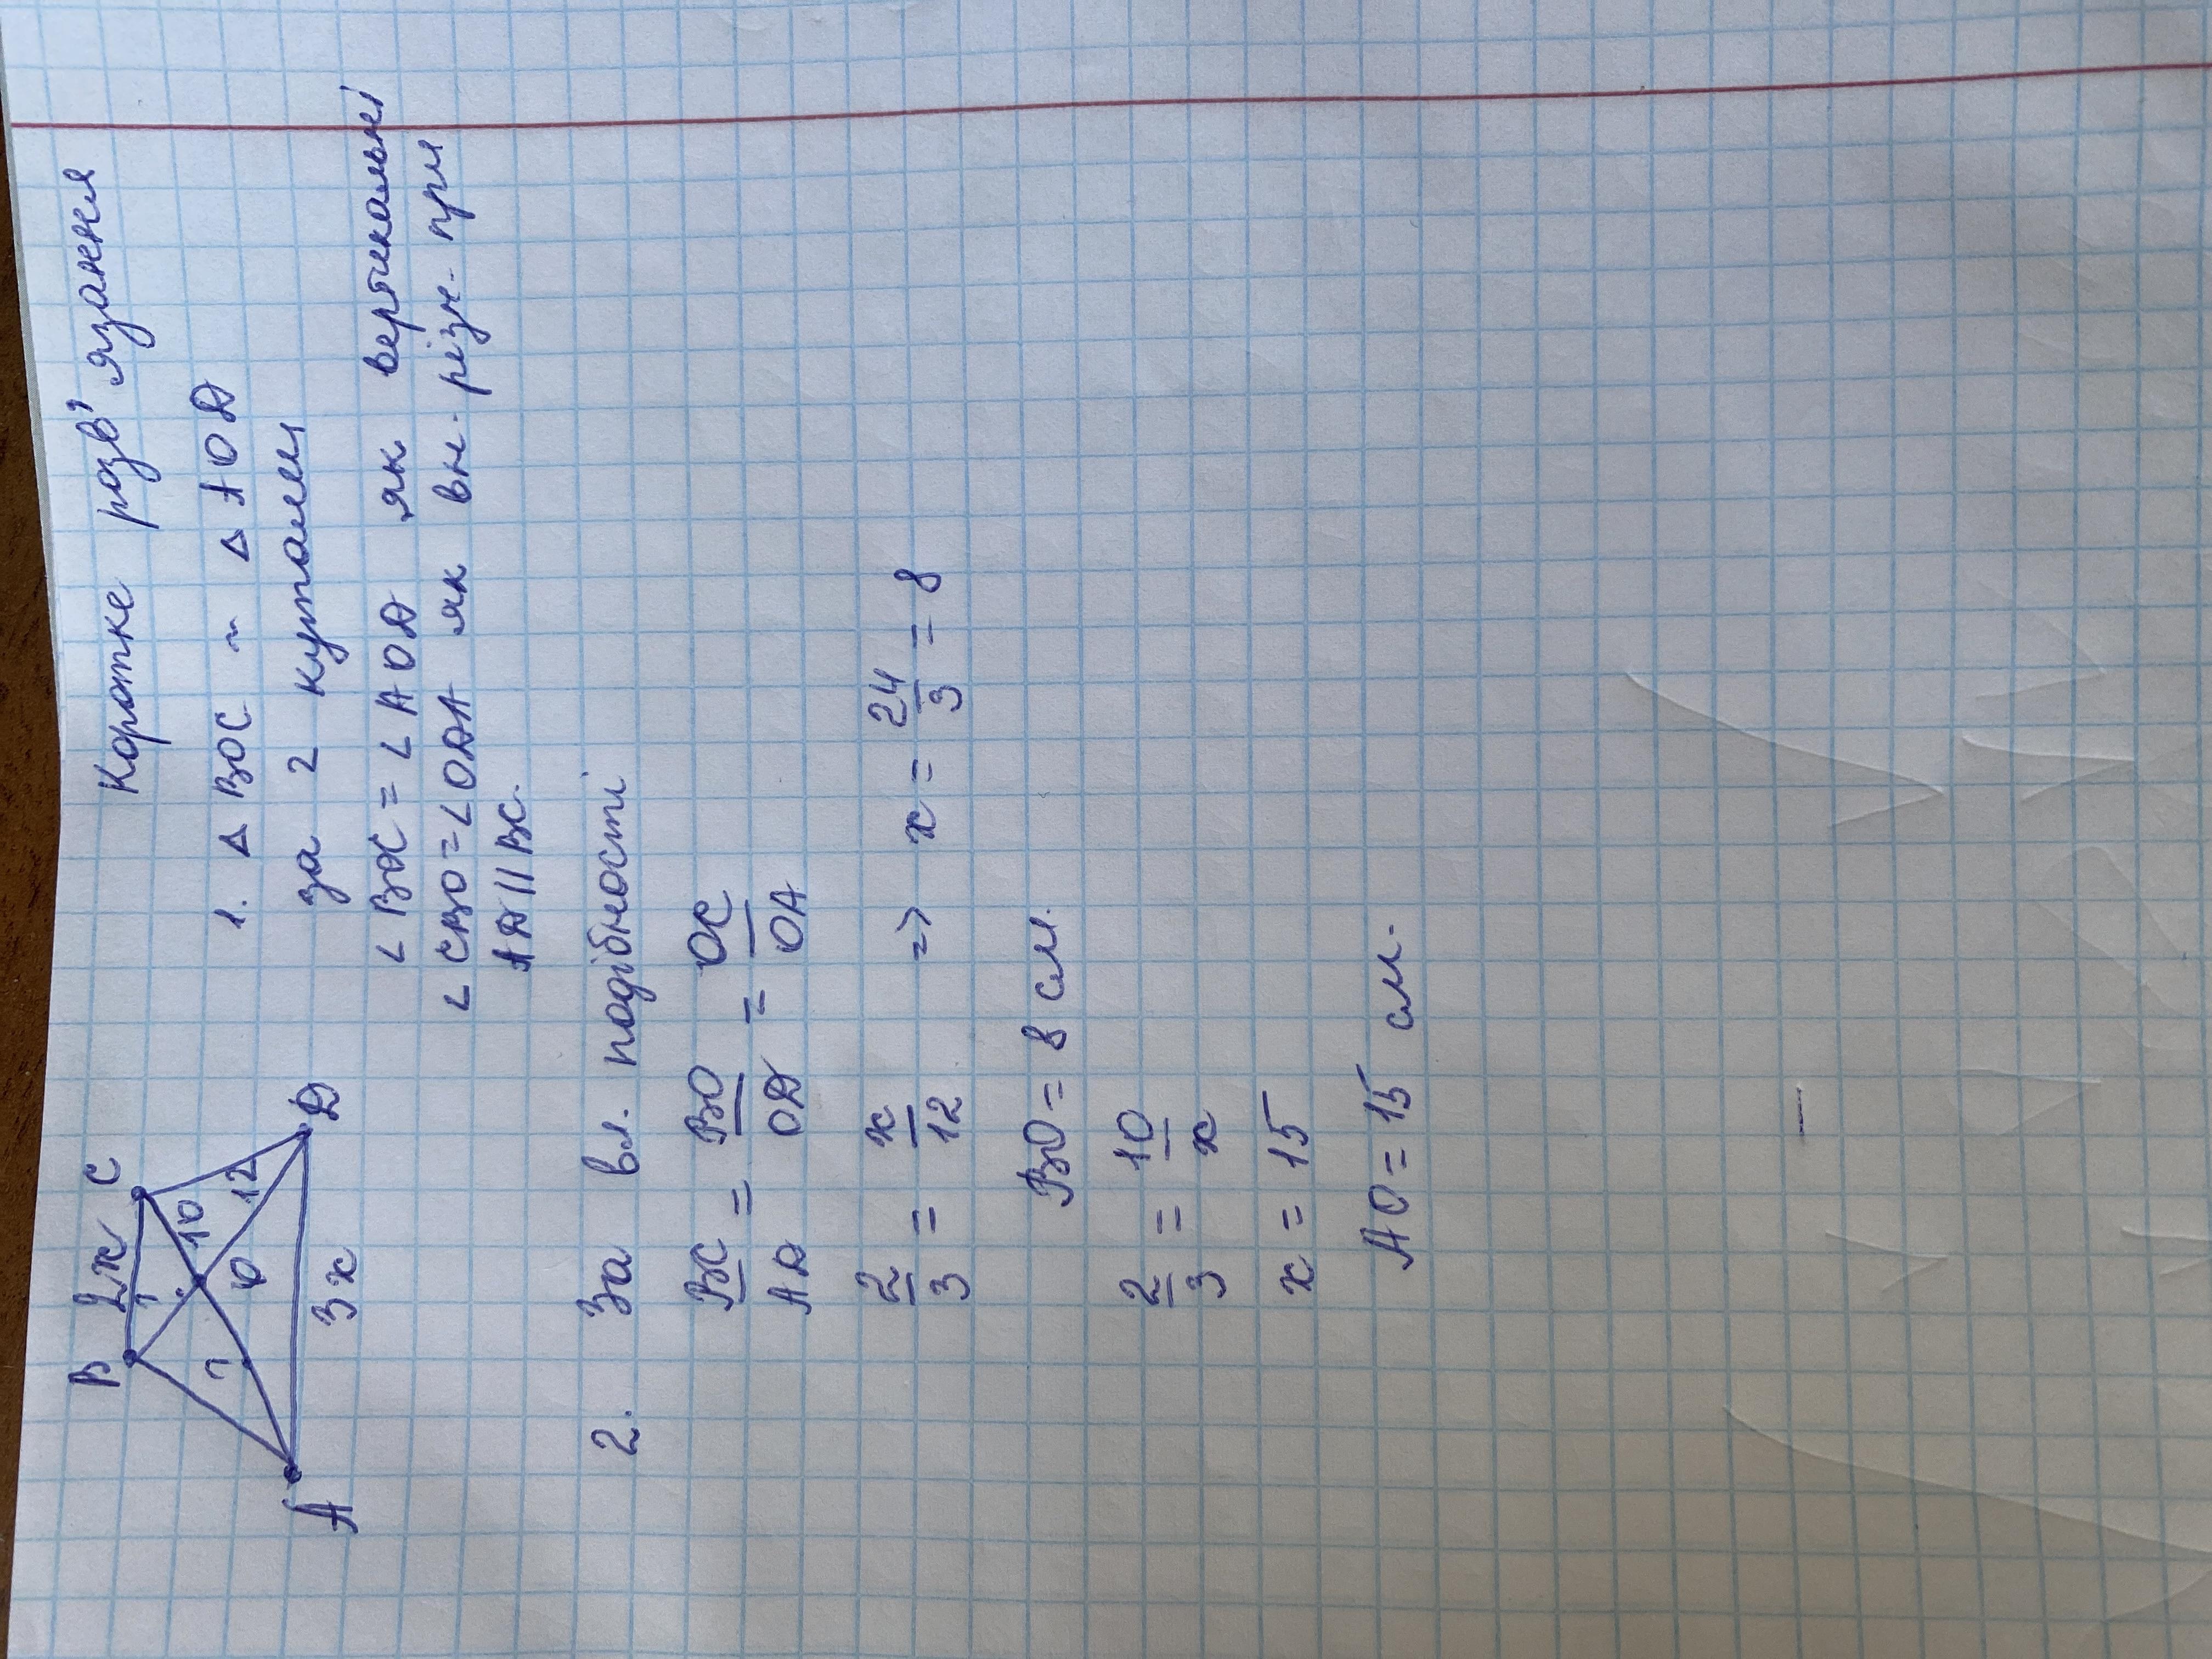 Коротке розв'язання
B 2x C
?
10
?
O
12
A
D
3x
1. △ BOC ~ △ AOD
за 2 кутами
∠ BOC = ∠ AOD як вертикальні
∠ CBO = ∠ ODA як вн. різн. при
AD || BC.
2. За вл. подібності
BC/AD = BO/OD = OC/OA
2/3 = x/12 => x = 24/3 = 8
BO = 8 см.
2/3 = 10/x
x = 15
AO = 15 см.